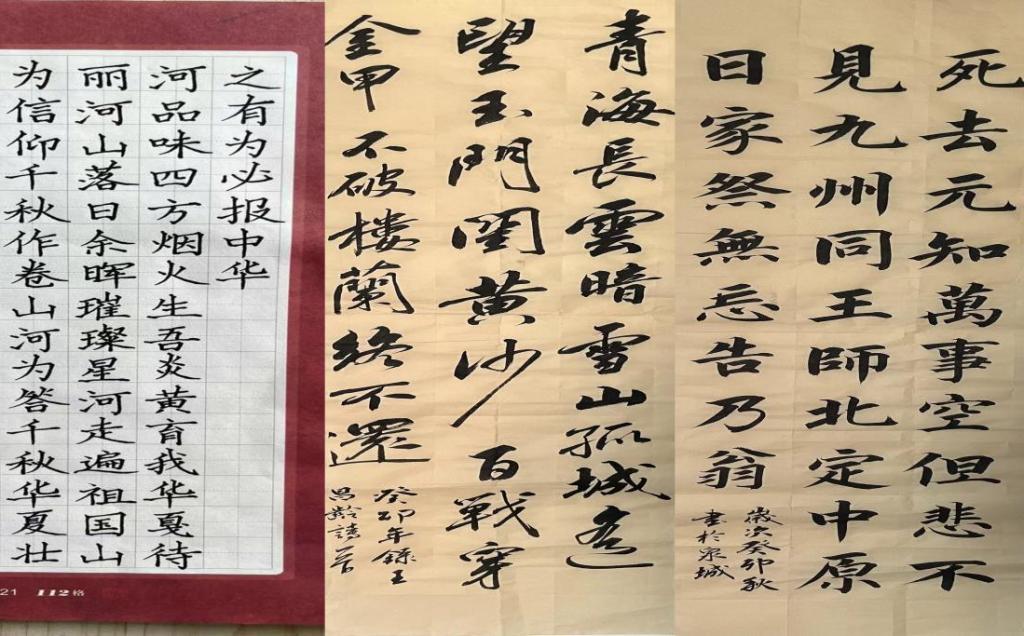 为信仰千秋作卷山河为答千秋华夏壮
丽河山落日余晖璀璨星河走遍祖国山
河品味四方烟火生吾炎黄育我华夏待
之有为必报中华
21 112格
青海長雲暗雪山孤城遥
望玉門関黄沙百戰穿
金甲不破樓蘭終不還
癸卯年錄王
昌齡詩
死去元知萬事空但悲不
見九州同王師北定中原
日家祭無忘告乃翁
歲次癸卯秋
書於泉城